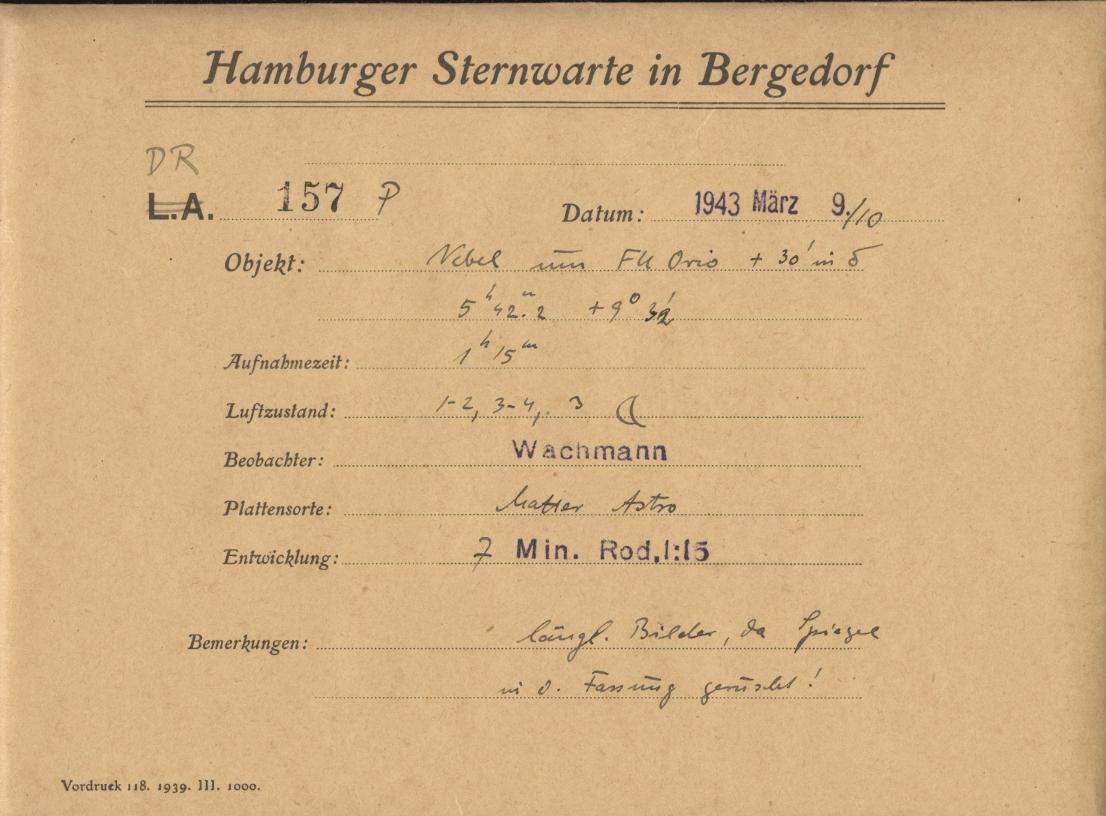 Hamburger Sternwarte in Bergedorf
DR
L.A. 157 P Datum: 1943 März 9./10
Objekt: Nebel um FU Orio + 30' in δ
5ʰ 42ᵐ.2 + 9° 32'
Aufnahmezeit: 1ʰ 15ᵐ
Luftzustand: 1-2, 3-4, 3
Beobachter: Wachmann
Plattensorte: Matter Astro
Entwicklung: 7 Min. Rod. 1:15
Bemerkungen: längl. Bilder, da Spiegel
in d. Fassung gerutscht!
Vordruck 118. 1939. III. 1000.